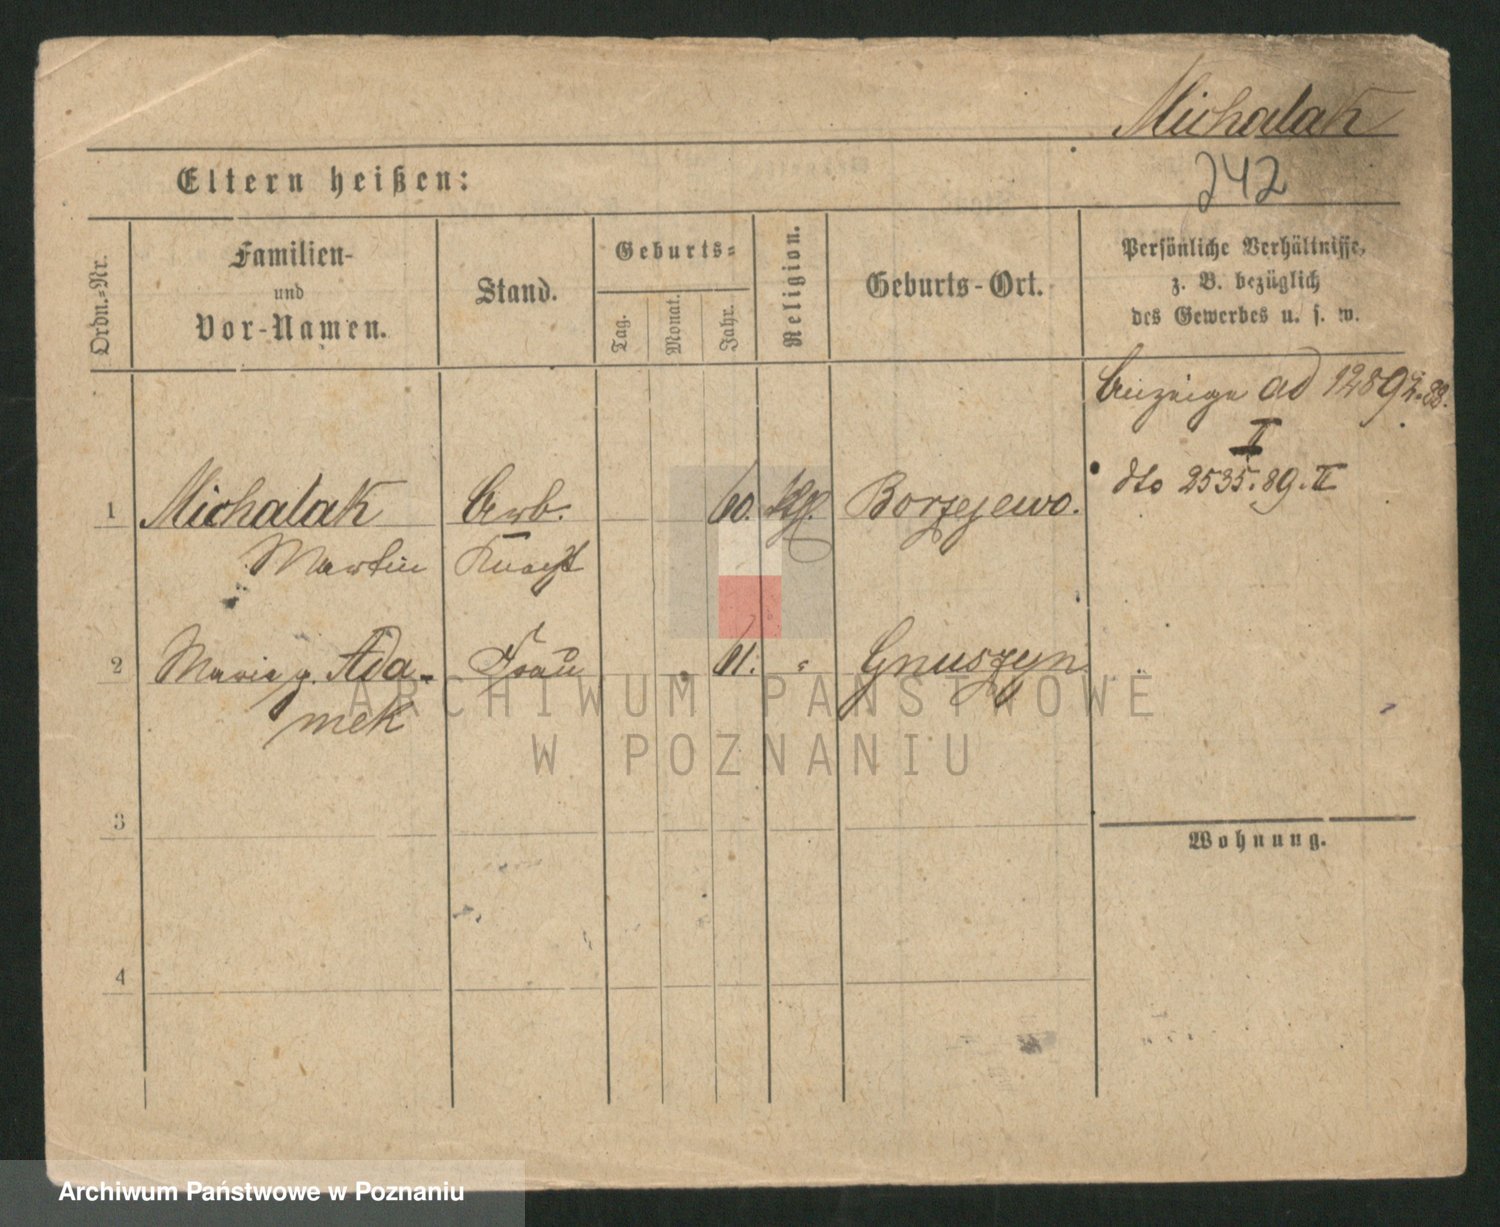 Michalak
242
Eltern heißen:
Ordn.-Nr.
Familien-
und
Vor-Namen.
Stand.
Geburts-
Tag.
Monat.
Jahr.
Religion.
Geburts-Ort.
Persönliche Verhältnisse,
z. B. bezüglich
des Gewerbes u. s. w.
Anzeige ad
II
dto 2535. 89. II
1 Michalak Arb. 60. Borzejewo.
Martin Knecht
2 Marie g. Ada- Frau 61. " Gnuszyn
mek
3
4
Wohnung.
ARCHIWUM PAŃSTWOWE
W POZNANIU
Archiwum Państwowe w Poznaniu